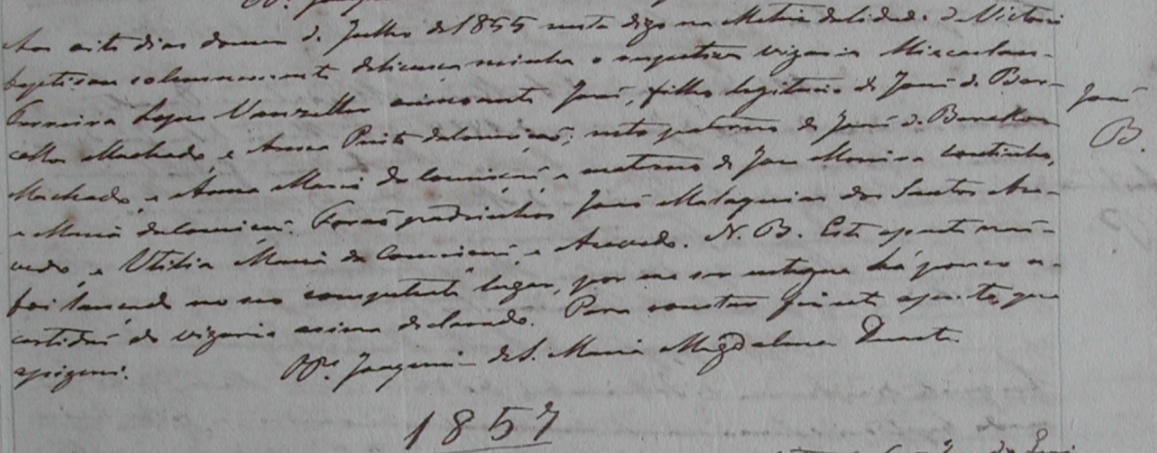 Aos oito dias do mez de Julho de 1855 nesta digo na Matriz da Cidade da Victoria
baptisou solemnemente de licença minha o respectivo vigario Miecesláu
Ferreira Lopes Wanzeller ao innocente José, filho legitimo de José de Bar-
cellos Machado, e Anna Pinto da Conceição; neto paterno de José de Barcellos
Machado, e Anna Maria da Conceição, e materno de João Moreira Coutinho,
e Maria da Conceição. Forão padrinhos José Malaquias dos Santos Aze-
vedo, e Utilia Maria da Conceição, e Azevedo. N. B. Este assento não
foi lançado no seo competente lugar, por me ser entregue há pouco a
certidão do vigario acima declarado. Para constar fiz este assento, que
assignei.
Joaquim de S. Maria Magdalena Duarte
José
B.
1857